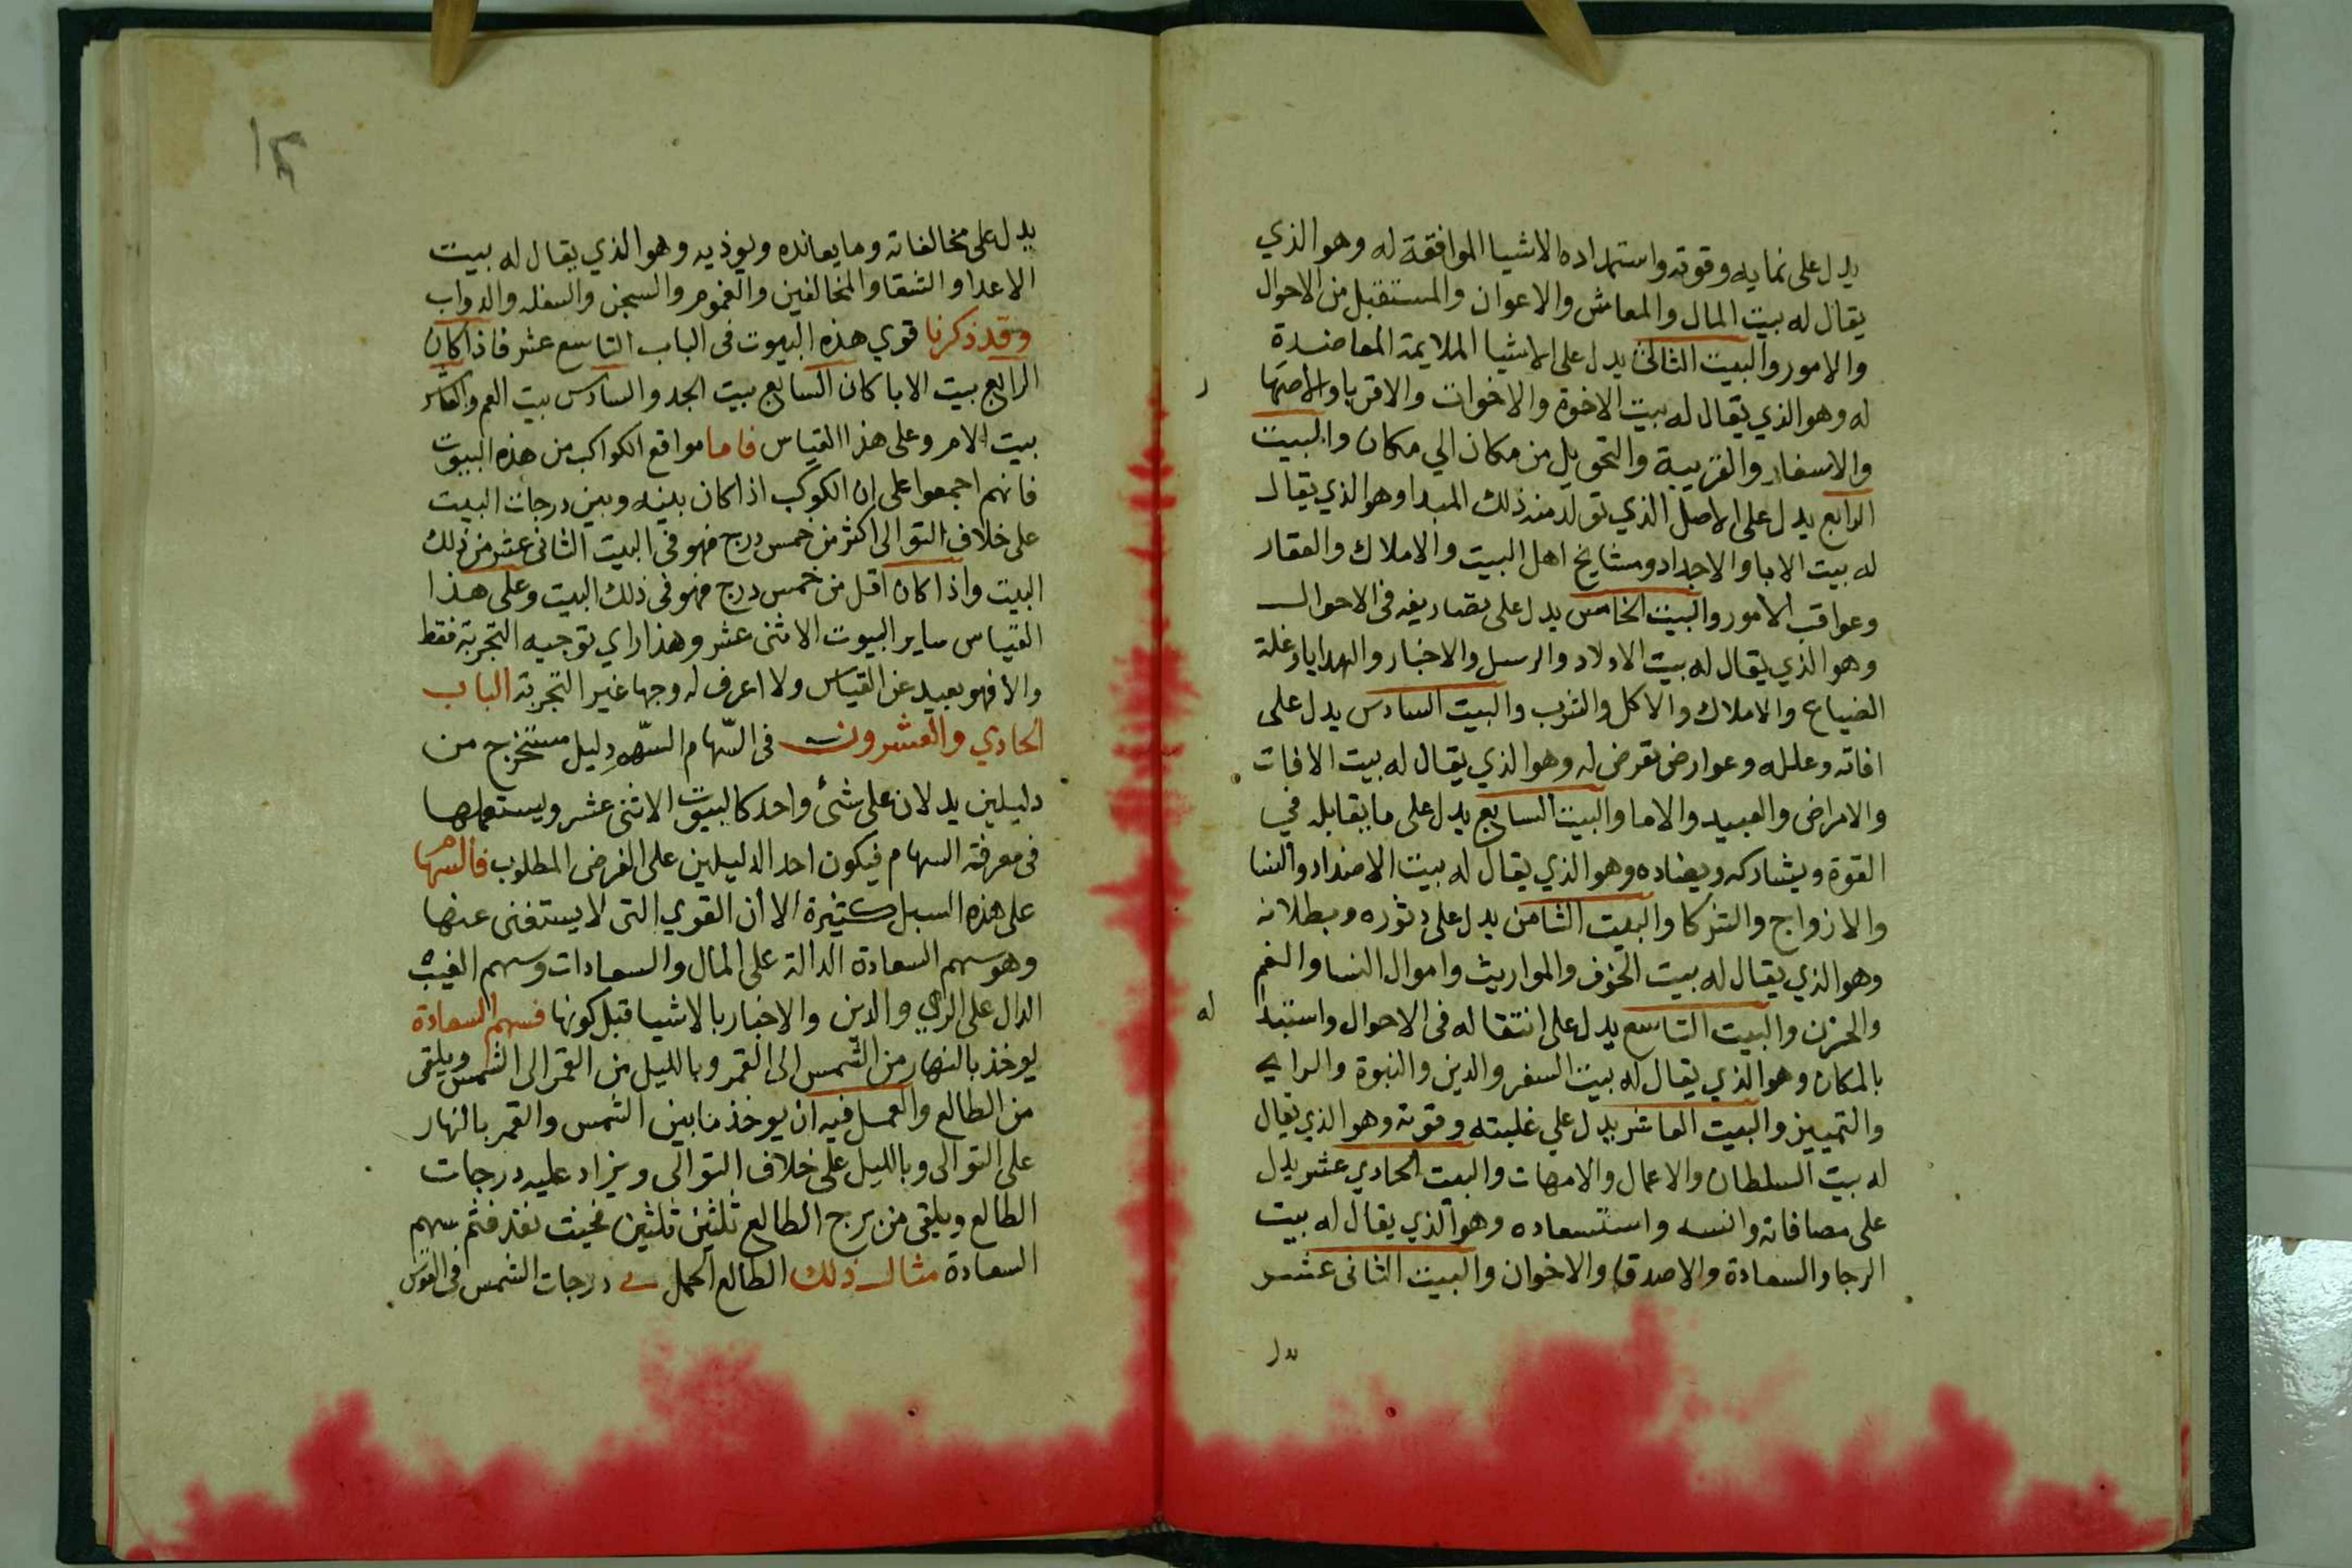 يدل على نمايه وقوته واستمداده الاشيا الموافقة له وهو الذي
يقال له بيت المال والمعاش والاعوان والمستقبل من الاحوال
والامور والبيت الثالث يدل على الاشيا الملايمة المعاضدة
له وهو الذي يقال له بيت الاخوة والاخوات والاقربا والاصهار
والاسفار والقريبة والتحويل من مكان الي مكان والبيت
الرابع يدل على الاصل الذي تولد منه ذلك المبدا وهو الذي يقال
له بيت الابا والاجداد ومشايخ اهل البيت والاملاك والعقار
وعواقب الامور والبيت الخامس يدل على تصاريفه في الاحوال
وهو الذي يقال له بيت الاولاد والرسل والاخبار والهدايا وغلة
الضياع والاملاك والاكل والشرب والبيت السادس يدل على
افاته وعلله وعوارض تعرض له وهو الذي يقال له بيت الافات
والامراض والعبيد والاما والبيت السابع يدل على ما يقابله في
القوة ويشاركه ويضاده وهو الذي يقال له بيت الاضداد والنسا
والازواج والشركا والبيت الثامن يدل على دثوره وبطلانه
وهو الذي يقال له بيت الخوف والمواريث واموال النسا والغم
والحزن والبيت التاسع يدل على انتقاله في الاحوال واستبدا له
بالمكان وهو الذي يقال له بيت السفر والدين والنبوة والراي
والتمييز والبيت العاشر يدل علي غلبته وقوته وهو الذي يقال
له بيت السلطان والاعمال والامهات والبيت الحادي عشر يدل
على مصافاته وانسه واستسعاده وهو الذي يقال له بيت
الرجا والسعادة والاصدقا والاخوان والبيت الثاني عشر
يدل
يدل على مخالفاته وما يعانده ويوذيه وهو الذي يقال له بيت
الاعدا والشقا والمخالفين والغموم والسجن والسفله والدواب
وقد ذكرنا قوي هذه البيوت في الباب التاسع عشر فاذا كان
الرابع بيت الابا كان السابع بيت الجد والسادس بيت العم والعاشر
بيت الام وعلى هذا القياس فاما مواقع الكواكب من هذه البيوت
فانهم اجمعوا على ان الكوكب اذا كان بينه وبين درجات البيت
على خلاف التوالى اكثر من خمس درج فهو في البيت الثاني عشر من ذلك
البيت واذا كان اقل من خمس درج فهو في ذلك البيت وعلى هذا
القياس ساير البيوت الاثنى عشر وهذا راي توجبه التجربة فقط
والا فهو بعيد عن القياس ولا اعرف له وجها غير التجربة الباب
الحادي والعشرون في السهام السهم دليل مستخرج من
دليلين يدلان على شئ واحد كالبيوت الاثنى عشر ويستعملها
في معرفة السهام فيكون احد الدليلين على الغرض المطلوب فالسهام
على هذه السبل كثيرة الا أن القوي التى لا يستغنى عنها
وهو سهم السعادة الدالة على المال والسعادات وسهم الغيب
الدال على الراي والدين والاخبار بالاشيا قبل كونها فسهم السعادة
يوخذ بالنهار من الشمس الى القمر وبالليل من القمر الى الشمس ويلقى
من الطالع والعمل فيه ان يوخذ ما بين الشمس والقمر بالنهار
على التوالى وبالليل على خلاف التوالى ويزاد عليه درجات
الطالع ويلقى من برج الطالع ثلثين ثلثين فحيث نفذ فثم سهم
السعادة مثال ذلك الطالع الحمل درجات الشمس في القوس